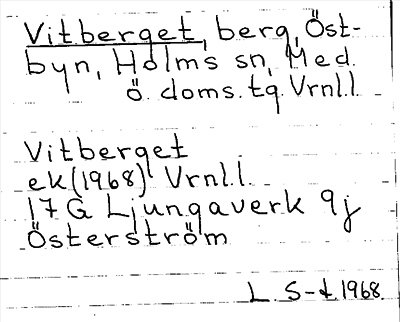 Vitberget, berg, Öst-
byn, Holms sn, Med.
ö. doms. tg. Vrnl.l.
Vitberget
ek(1968) Vrnl.l.
17G Ljungaverk 9j
Österström
L. S-d. 1968.